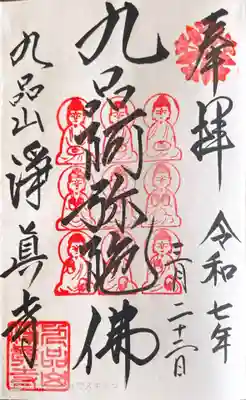 奉拝
令和七年
三月二十二日
九品阿弥陀佛
九品山
淨真寺